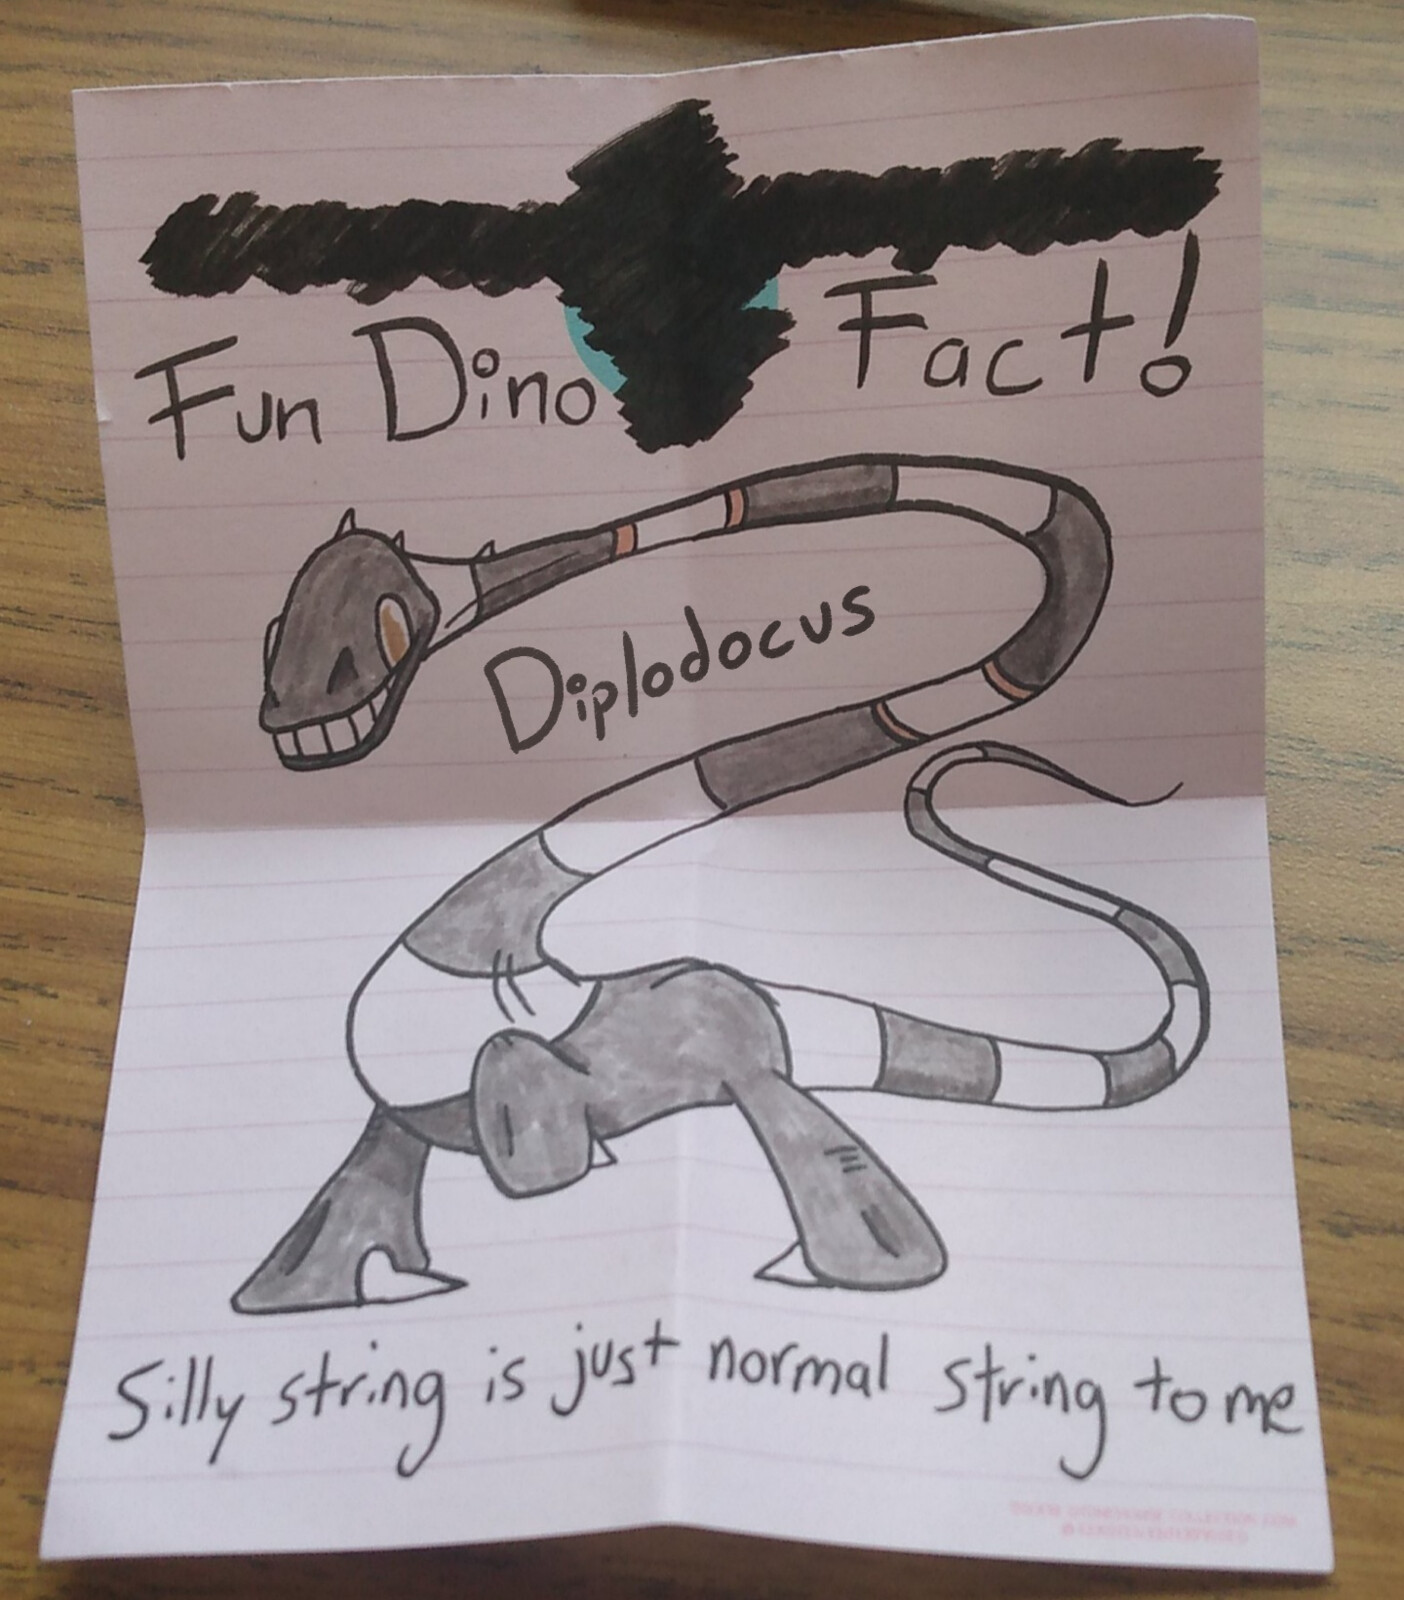 Fun Dino Fact!
Diplodocus
Silly string is just normal string to me